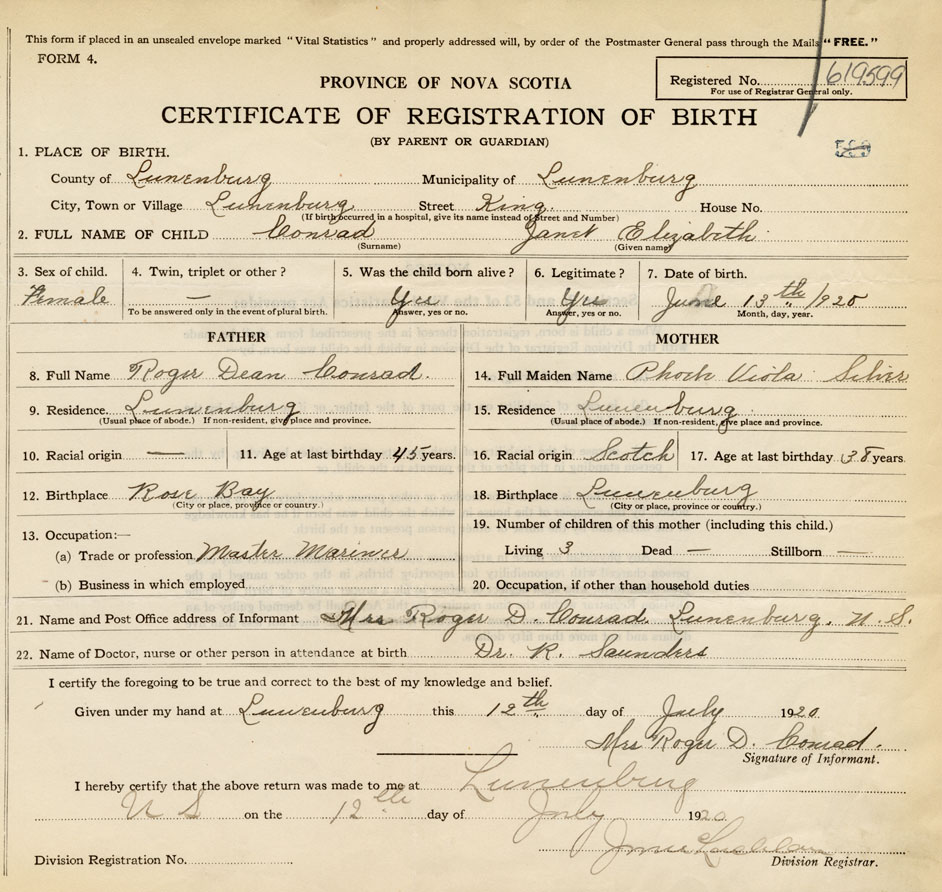 This form if placed in an unsealed envelope marked "Vital Statistics" and properly addressed will, by order of the Postmaster General pass through the Mails "FREE."
FORM 4.
Registered No. 619599
For use of Registrar General only.
PROVINCE OF NOVA SCOTIA
CERTIFICATE OF REGISTRATION OF BIRTH
(BY PARENT OR GUARDIAN)
1. PLACE OF BIRTH.
County of Lunenburg Municipality of Lunenburg
City, Town or Village Lunenburg Street King. House No.
(If birth occurred in a hospital, give its name instead of Street and Number)
2. FULL NAME OF CHILD Conrad Janet Elizabeth
(Surname) (Given name)
3. Sex of child. 4. Twin, triplet or other? 5. Was the child born alive? 6. Legitimate? 7. Date of birth.
Female — Yes Yes June 13th/1920
To be answered only in the event of plural birth. Answer, yes or no. Answer, yes or no. Month, day, year.
FATHER MOTHER
8. Full Name Roger Dean Conrad. 14. Full Maiden Name Phoeb Viola Silver
9. Residence. Lunenburg 15. Residence Lunenburg
(Usual place of abode.) If non-resident, give place and province. (Usual place of abode.) If non-resident, give place and province.
10. Racial origin — 11. Age at last birthday 45 years. 16. Racial origin Scotch 17. Age at last birthday 38 years.
12. Birthplace Rose Bay 18. Birthplace Lunenburg
(City or place, province or country.) (City or place, province or country.)
13. Occupation:— 19. Number of children of this mother (including this child.)
(a) Trade or profession Master Mariner Living 3 Dead — Stillborn —
(b) Business in which employed 20. Occupation, if other than household duties
21. Name and Post Office address of Informant Mrs Roger D. Conrad Lunenburg. N. S.
22. Name of Doctor, nurse or other person in attendance at birth Dr. R. Saunders
I certify the foregoing to be true and correct to the best of my knowledge and belief.
Given under my hand at Lunenburg this 12th day of July 1920
Mrs Roger D. Conrad.
Signature of Informant.
I hereby certify that the above return was made to me at Lunenburg
N S on the 12th day of July 1920
Division Registration No. Division Registrar.